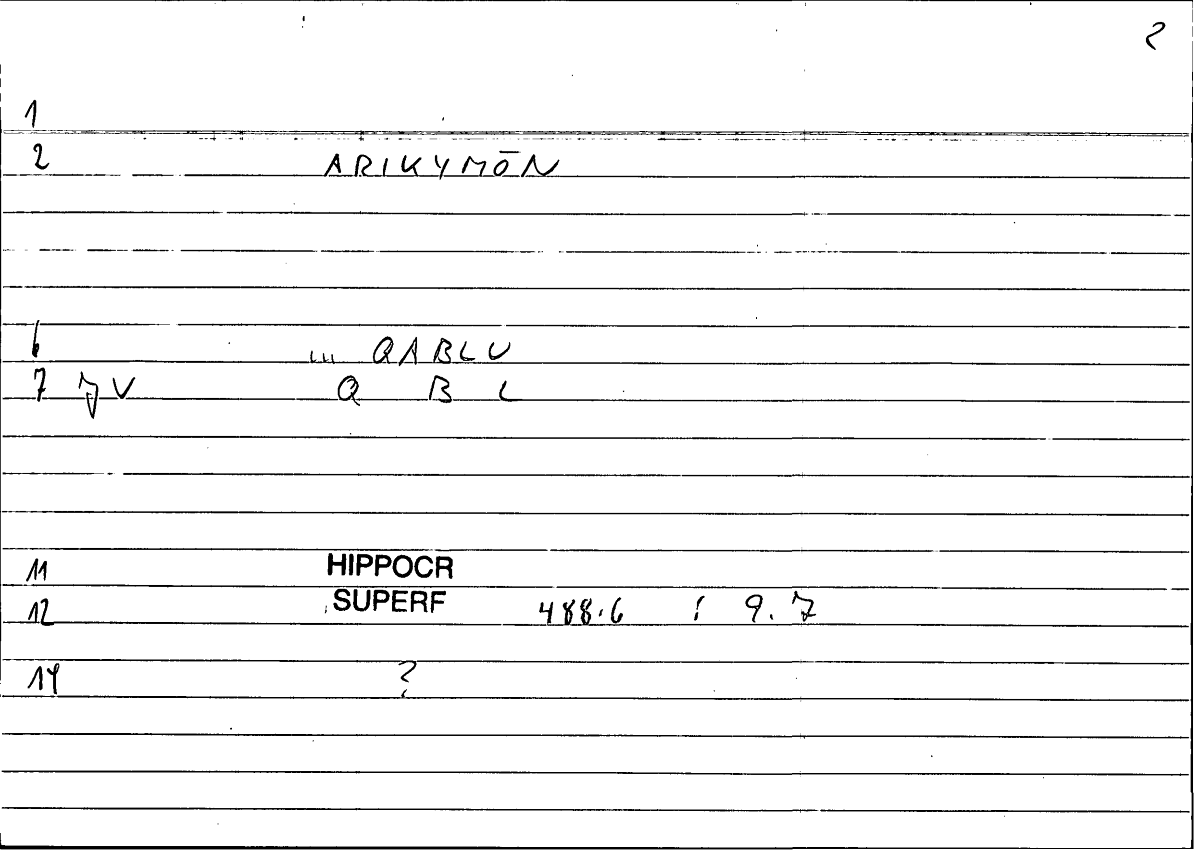 2
1
2 ARIKYMŌN
6 ... QABLU
7 V Q B L
11 HIPPOCR
12 SUPERF 488.6 ; 9.7
14 ?